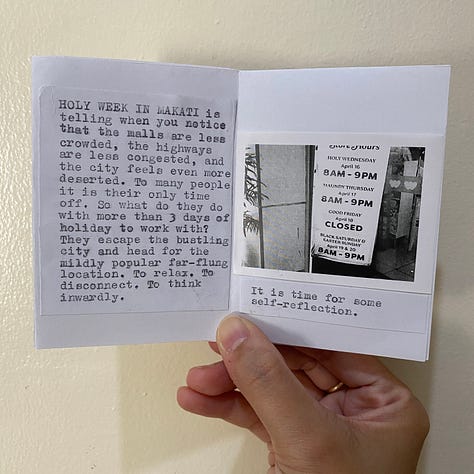 HOLY WEEK IN MAKATI is
telling when you notice
that the malls are less
crowded, the highways
are less congested, and
the city feels even more
deserted. To many people
it is their only time
off. So what do they do
with more than 3 days of
holiday to work with?
They escape the bustling
city and head for the
mildly popular far-flung
location. To relax. To
disconnect. To think
inwardly.
Store Hours
HOLY WEDNESDAY
April 16
8AM - 9PM
MAUNDY THURSDAY
April 17
8AM - 9PM
GOOD FRIDAY
April 18
CLOSED
BLACK SATURDAY &
EASTER SUNDAY
April 19 & 20
8AM - 9PM
It is time for some
self-reflection.